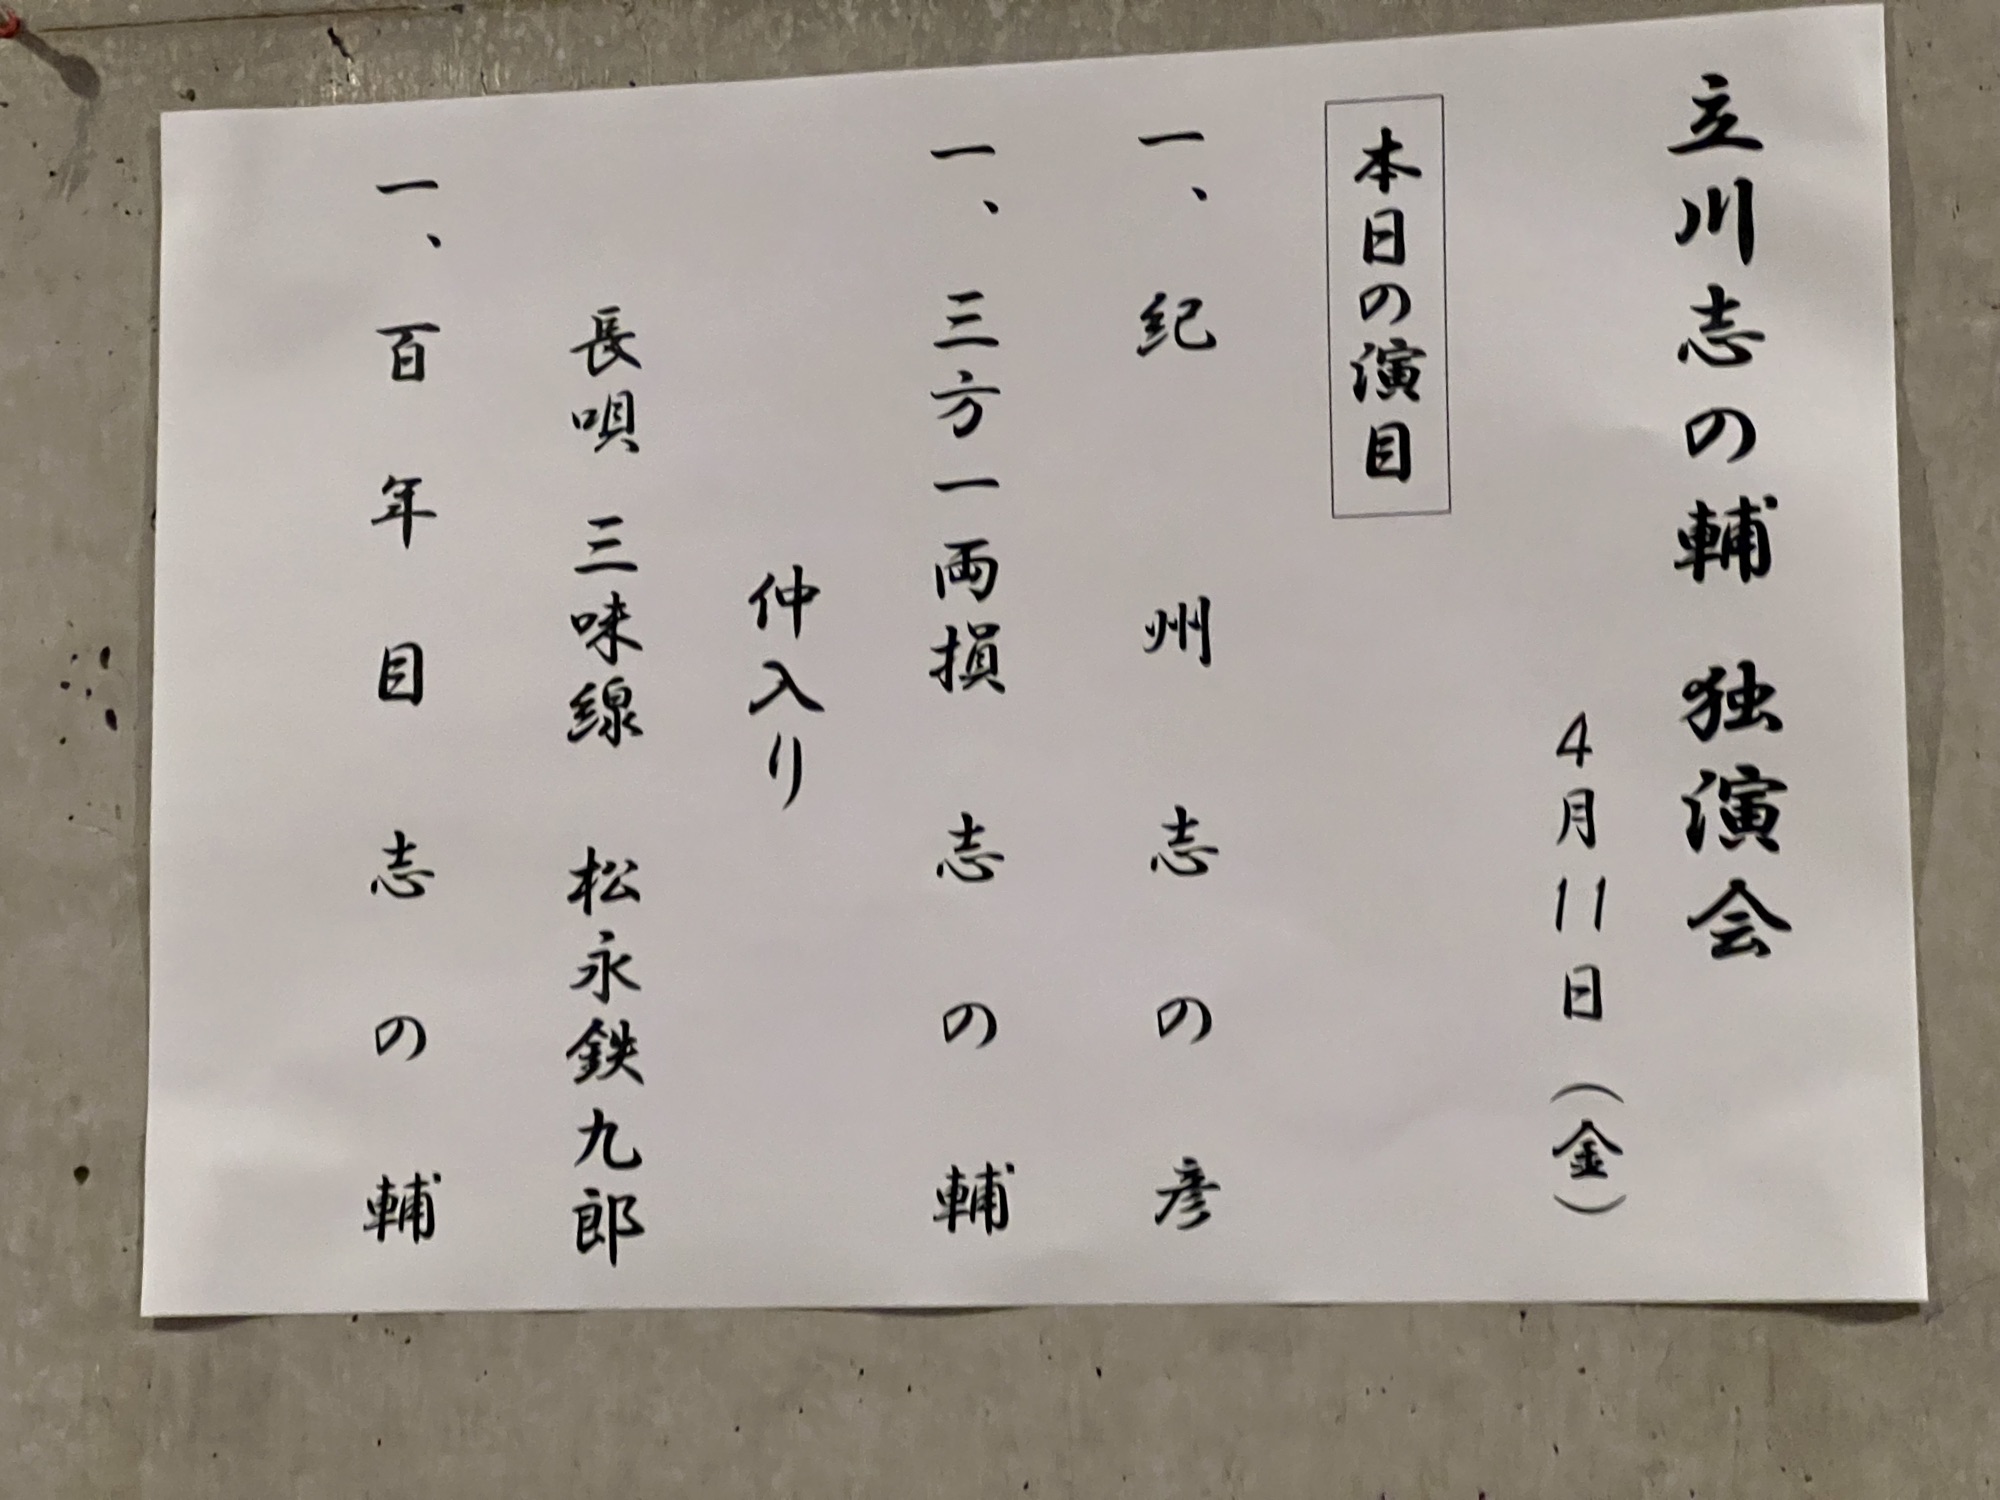 立川志の輔 独演会
4月11日(金)
本日の演目
一、紀州 志の彦
一、三方一両損 志の輔
仲入り
長唄 三味線 松永鉄九郎
一、百年目 志の輔